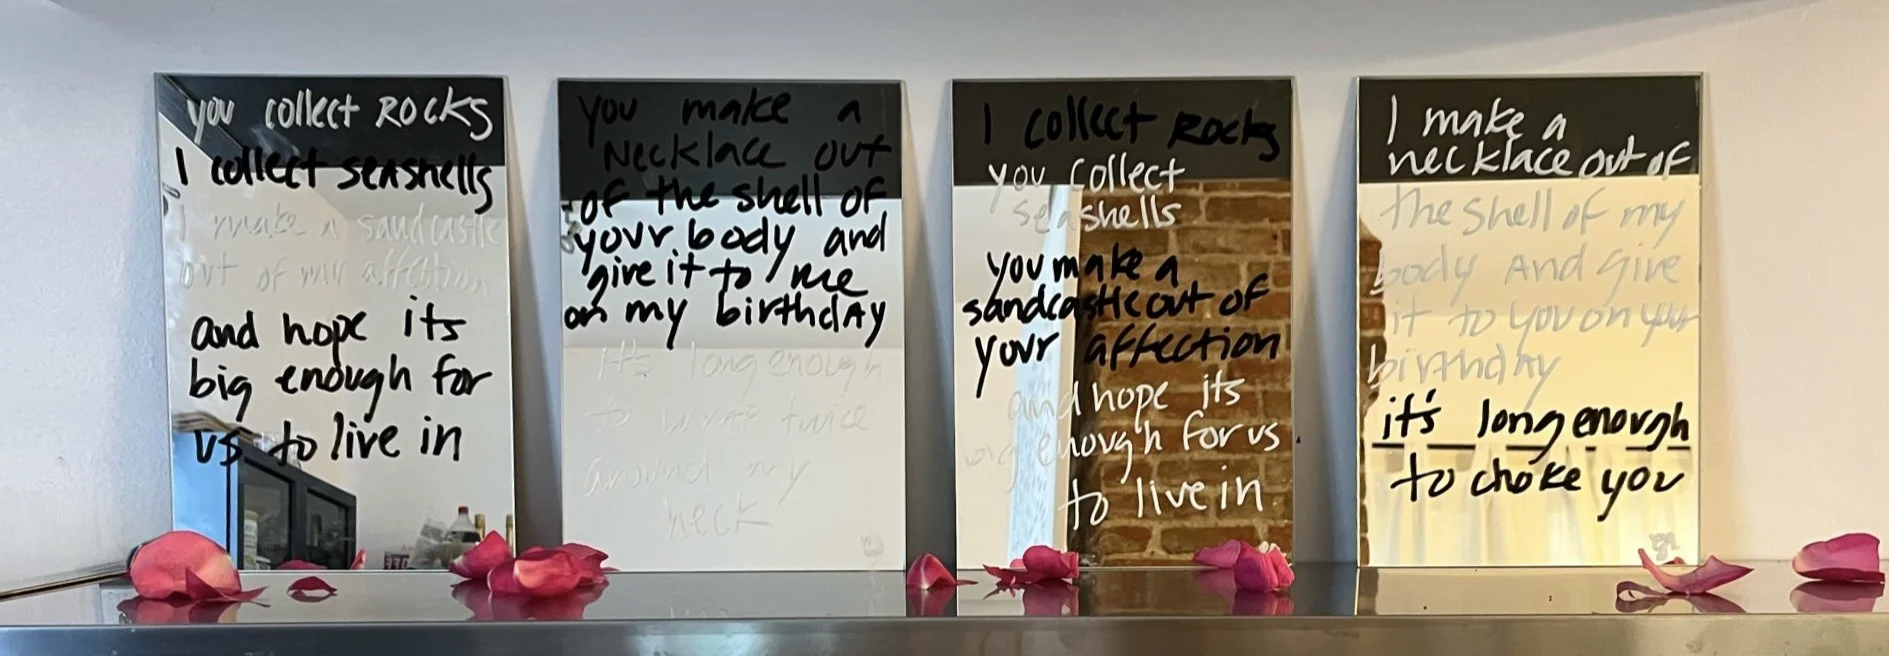 you collect Rocks
I collect seashells
I make a sandcastle
out of my affection
and hope its
big enough for
us to live in
you make a
Necklace out
of the shell of
your body and
give it to me
on my birthday
it's long enough
to wrap twice
around my
neck
I collect Rocks
you collect
seashells
you make a
sandcastle out of
your affection
and hope its
big enough for us
to live in.
I make a
necklace out of
the shell of my
body and give
it to you on your
birthday
it's long enough
to choke you